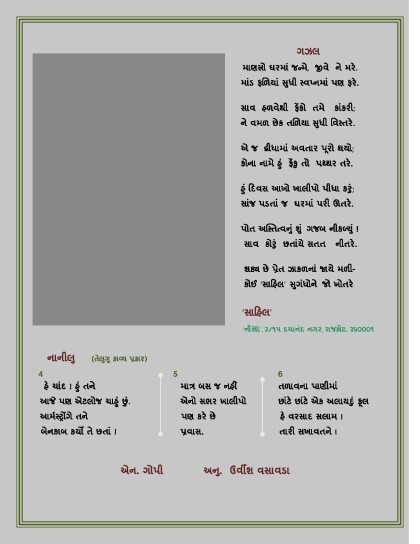 ગઝલ
માણસો ઘરમાં જન્મે, જીવે ને મરે.
માંડ ફળિયાં સુધી સ્વપ્નમાં પણ ફરે.
સાવ હળવેથી ફેંકો તમે કાંકરી;
ને વમળ છેક તળિયા સુધી વિસ્તરે.
એ જ દ્વીધામાં અવતાર પૂરો થયો;
કોના નામે હું ફેંકુ તો પથ્થર તરે.
હું દિવસ આખો ખાલીપો પીધા કરું;
સાંજ પડતાં જ ઘરમાં પરી ઊતરે.
પોત અસ્તિત્વનું શું ગજબ નીકળ્યું !
સાવ કોરું છતાંયે સતત નીતરે.
શક્ય છે પ્રેત ઝાકળનાં જાયે મળી-
કોઈ 'સાહિલ' સુગંધોને જો ખોતરે
'સાહિલ'
'નીશા', ૩/૧૫ દયાનંદ નગર, રાજકોટ. 360002
નાનીલુ (તેલુગુ કાવ્ય પ્રકાર)
4
હે ચાંદ ! હું તને
આજે પણ એટલોજ ચાહું છું.
આર્મસ્ટ્રોંગે તને
બેનકાબ કર્યો તે છતાં !
5
માત્ર બસ જ નહીં
એનો સભર ખાલીપો
પણ કરે છે
પ્રવાસ.
6
તળાવના પાણીમાં
છાંટે છાંટે એક અલાયદું ફૂલ
હે વરસાદ સલામ !
તારી સખાવતને !
એન. ગોપી અનુ. ઉર્વીશ વસાવડા